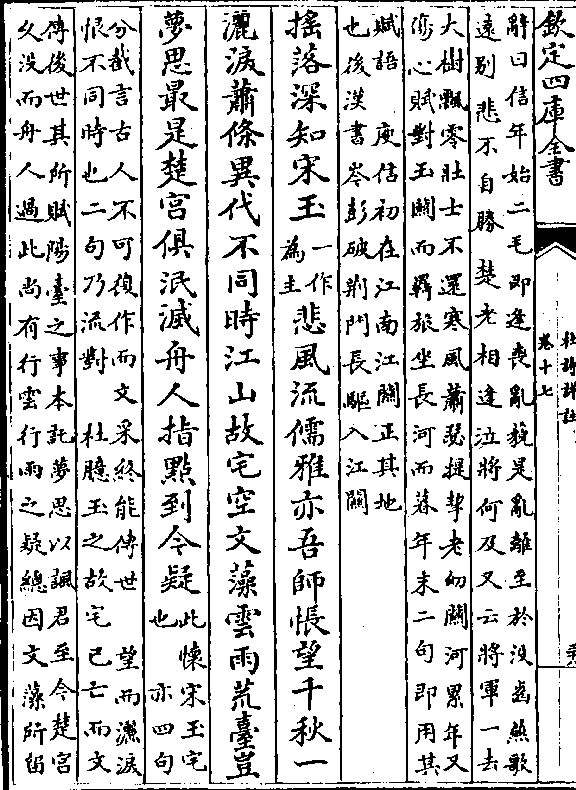 欽定四庫全書
杜詩詳註
卷十七
辭曰信年始二毛即逢喪亂藐是亂離至於沒齒燕歌
遠别悲不自勝楚老相逢泣將何及又云將軍一去
大樹飄零壯士不還寒風蕭瑟提挈老幼關河累年又
傷心賦對玉關而羇旅坐長河而暮年末二句即用其
賦語 庾信初在江南江關正其地
也後漢書岑彭破荆門長驅入江關
搖落深知宋玉一作為主悲風流儒雅亦吾師悵望千秋一
灑淚蕭條異代不同時江山故宅空文藻雲雨荒臺豈
夢思最是楚宫俱泯滅舟人指點到今疑此懷宋玉宅也 亦四句
分截言古人不可復作而文采終能傳世 望而灑淚
恨不同時也二句乃流對 杜臆玉之故宅已亡而文
傳後世其所賦陽臺之事本託夢思以諷君至今楚宫
久没而舟人過此尚有行雲行雨之疑總因文藻所留